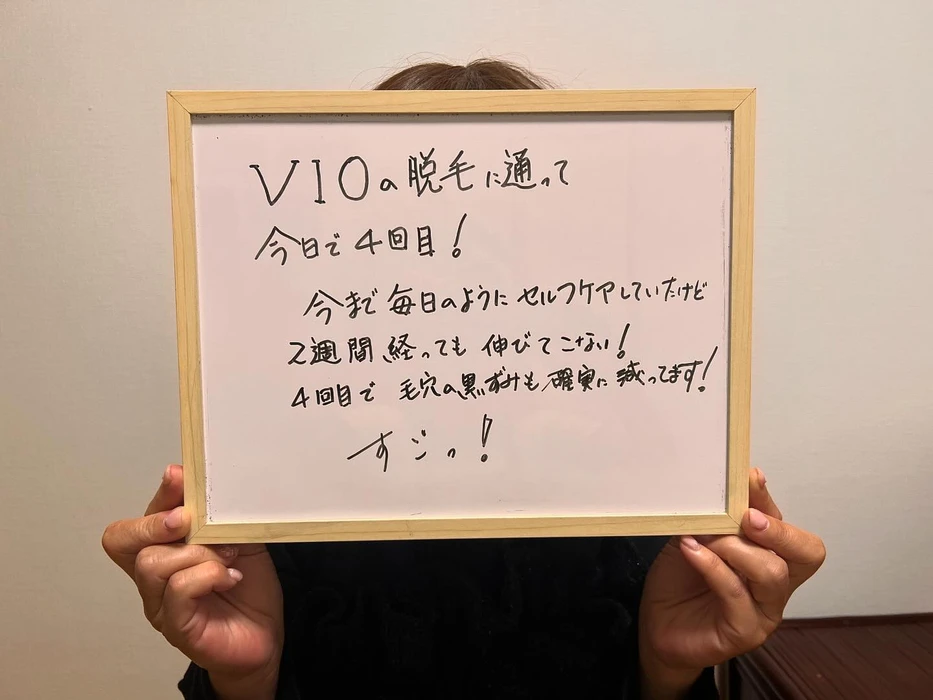 VIOの脱毛に通って
今日で4回目!
今まで毎日のようにセルフケアしていたけど
2週間経っても伸びてこない!
4回目で毛穴の黒ずみも確実に減ってます!
すごっ!